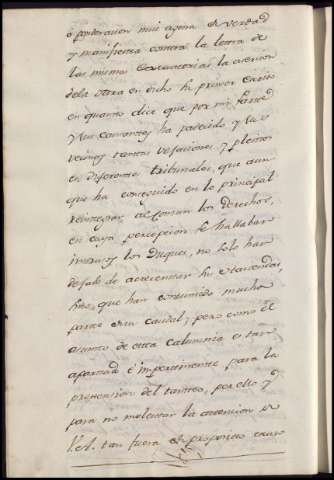 ô ponderacion mui agena de verdad
y manifiesta contra la letra de
las mismas Executorias la asercion
dela otra en dicho su primer Escrito
en quanto dice que por mi Parte
y sus causantes ha padecido y sus
vecinos tantas vejaciones y pleitos
en diferentes tribunales, que aun
que ha conseguido en lo principal
reintegrar al comun los derechos,
en cuya percepcion se hallaban
intrusos los Duques, no solo han
dejado de acrecentar sus
que han consumido mucha
parte de su caudal; pero como el
asunto de esta Calumnia es tan
apartado é impertinente para la
pretension del tanteo, por ello y
para no molestar la atencion de
V.A. tan fuera de proposito